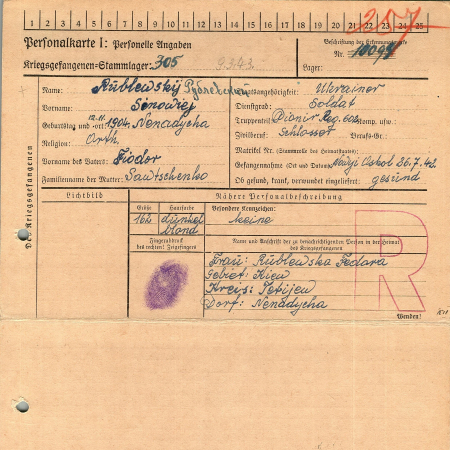 1 2 3 4 5 6 7 8 9 10 11 12 13 14 15 16 17 18 19 20 21 22 23 24 25
257
Personalkarte I: Personelle Angaben
Beschriftung der Erkennungsmarke
Nr. 10094
Kriegsgefangenen-Stammlager: 305 9.3.43.
Lager:
Des Kriegsgefangenen
Name: Rublewskyj
Staatsangehörigkeit: Ukrainer
Vorname: Senowiej
Dienstgrad: Soldat
Truppenteil: Pionir Reg. 601 Komp. usw.:
Geburtstag und -ort: 12.11.1904. Nenadycha
Zivilberuf: Schlosser Berufs-Gr.
Religion: Orth.
Matrikel Nr. (Stammrolle des Heimatstaates):
Vorname des Vaters: Fiodor
Gefangennahme (Ort und Datum): Nowyj Oskol 26.7.42.
Familienname der Mutter: Sawtschenko
Ob gesund, krank, verwundet eingeliefert: gesund
Lichtbild
Nähere Personalbeschreibung
Größe Haarfarbe Besondere Kennzeichen:
162 dunkel blond keine
Fingerabdruck des rechten! Zeigefingers
Name und Anschrift der zu benachrichtigenden Person in der Heimat des Kriegsgefangenen
Frau: Rublewska Fedora
Gebiet: Kiew
Kreis: Tetijew
Dorf: Nenadycha
R
Wenden!